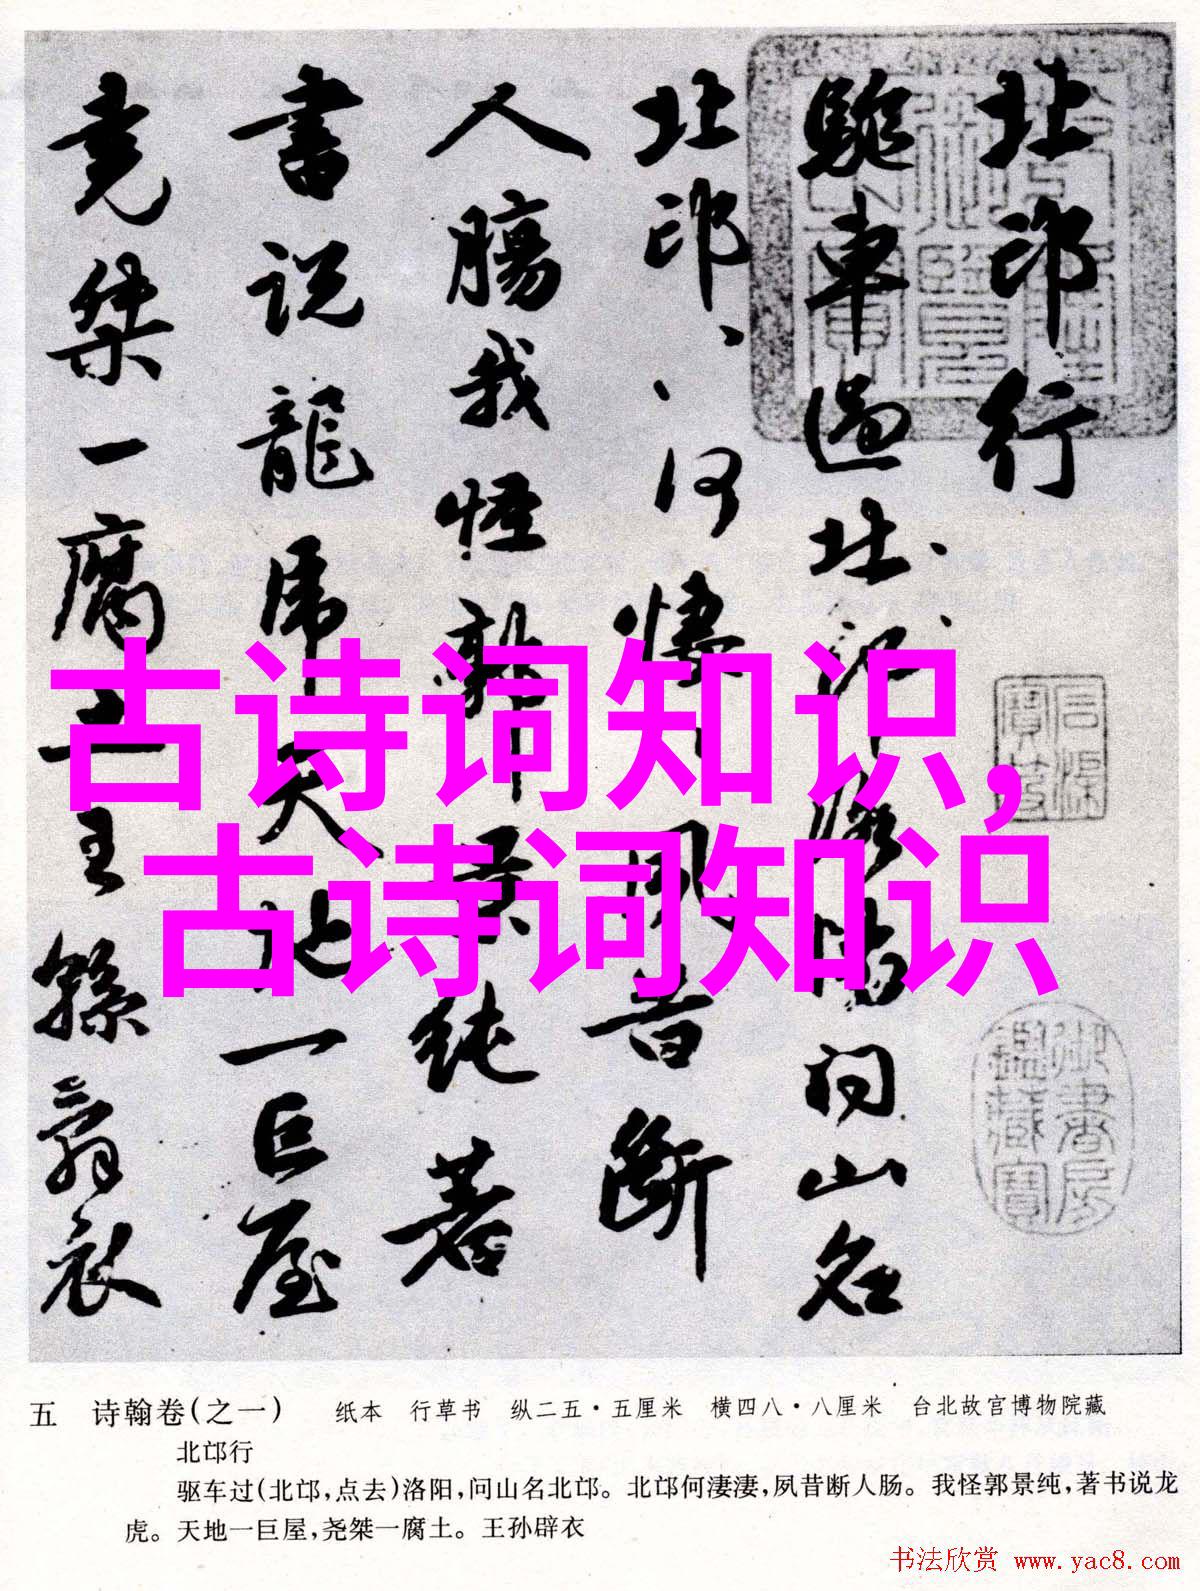 北邙行
驅車過北邙洛陽问山名
北邙、、何悽、夙昔斷
人腸我怪郭景纯著
書说龍虎天地一巨屋
堯桀一腐土王孫辟衣
古诗词知识,
古诗词知识
五 诗翰卷(之一) 纸本 行草书 纵二五·五厘米 横四八·八厘米 台北故宫博物院藏
北邙行
驱车过(北邙,点去)洛阳,问山名北邙。北邙何淒淒,夙昔断人肠。我怪郭景纯,著书说龙
虎。天地一巨屋,尧桀一腐土。王孙辟衣
书法欣赏 www.yac8.com